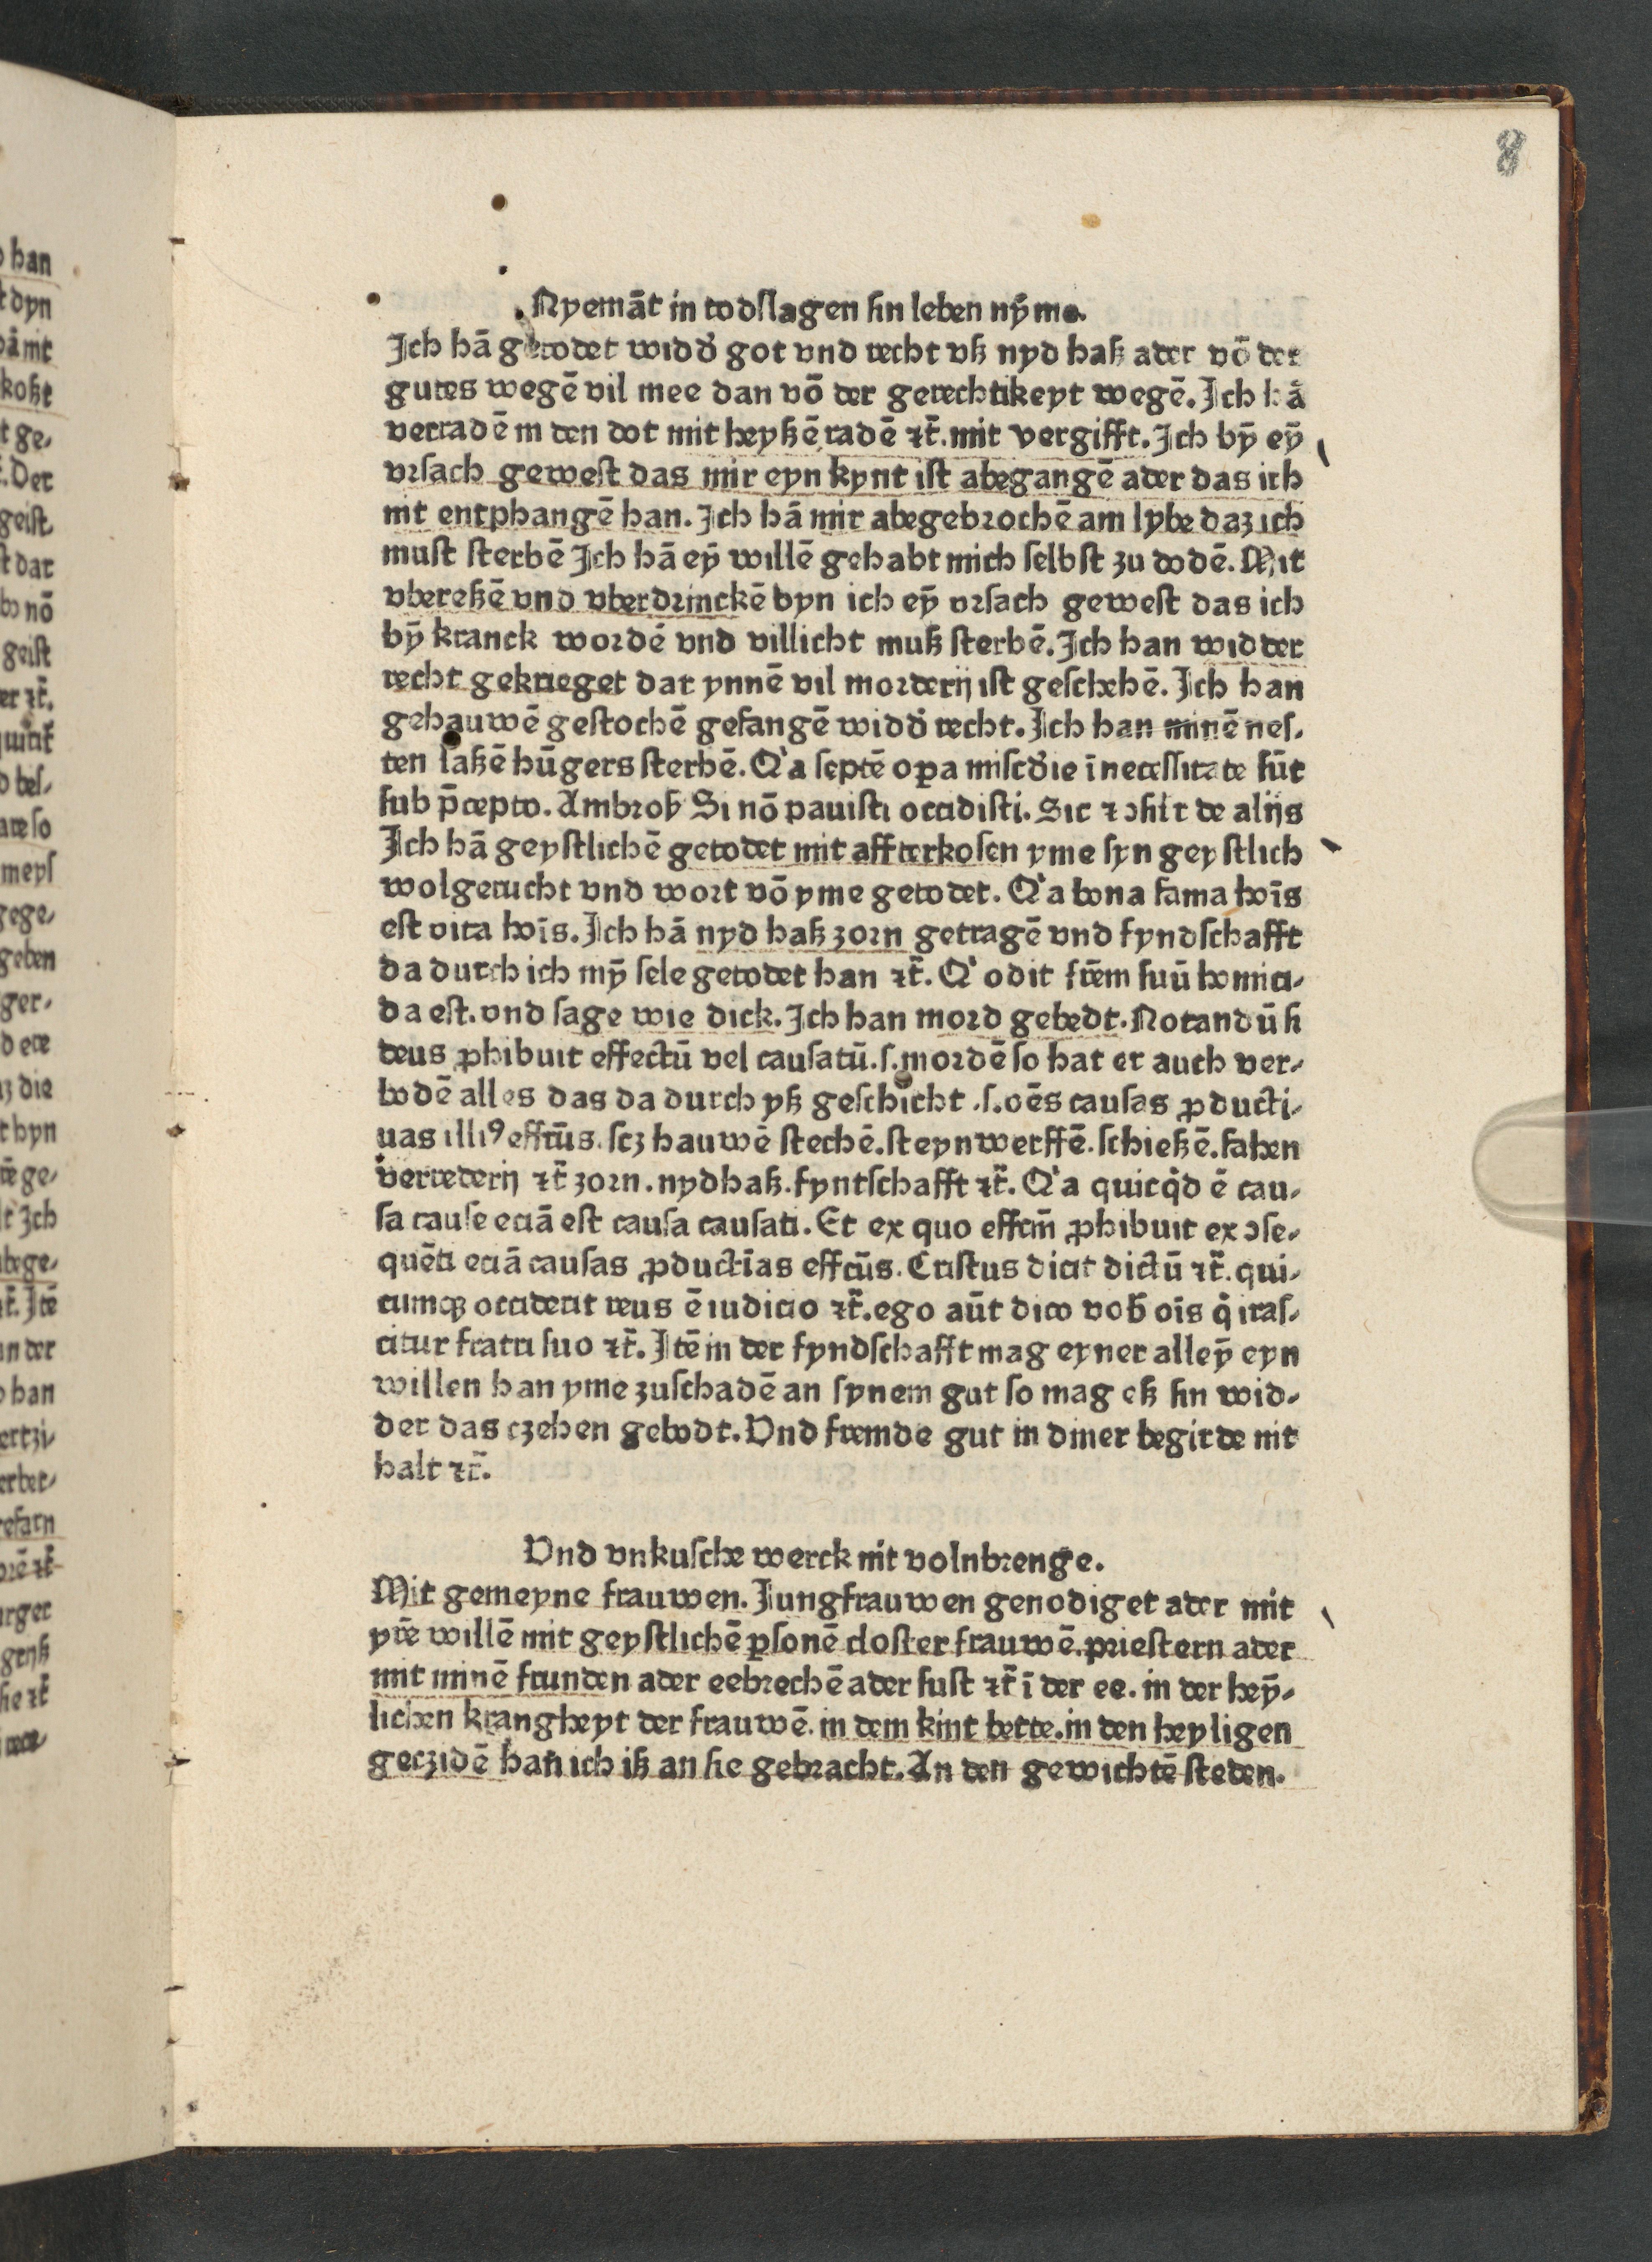 8
Nyemāt in todſlagen ſin leben nȳme.
Ich hā getodet widď got vnd recht vß nyd haß ader vō der
gutes wegē vil mee dan vō der gerechtikeyt wegē. Ich hā
verradē in den dot mit heyßē radē ⁊c̄. mit vergifft. Ich bȳ eȳ
vrſach geweſt das mir eyn kynt iſt abegangē ader das ich
nit entphangē han. Ich hā mir abegebrochē am lybe daz ich
muſt ſterbē Ich hā eȳ willē gehabt mich ſelbſt zu dodē. Mit
vbereßē vnd vberdrinckē byn ich eȳ vrſach geweſt das ich
bȳ kranck wordē vnd villicht muß ſterbē. Ich han widder
recht gekrieget dar ynnē vil morderij iſt geſchehē. Ich han
gehauwē geſtochē gefangē widď recht. Ich han minē neſ⸗
ten laßē hūgers ſterbē. Qͣa ſeptē oꝑa miſcďie ī neceſſitate ſūt
ſub p̄cepto. Ambroſ Si nō paviſti occidiſti. Sic ⁊ ↄſilr de alijs
Ich hā geyſtlichē getodet mit affterkoſen yme ſyn geyſtlich
wolgerucht vnd wort vō yme getodet. Qͣa bona fama hoīs
eſt vita hoīs. Ich hā nyd haß zorn getragē vnd fyndſchafft
da durch ich mȳ ſele getodet han ⁊c̄. Q' odit fr̄em ſuū homici⸗
da eſt. vnd ſage wie dick. Ich han mord gebedt. Notandū ſi
deus ꝓhibuit effectū vel cauſatū. ſ. mordē ſo hat er auch ver⸗
bodē alles das da durch yß geſchicht .ſ. oēs cauſas ꝓducti⸗
uas illiꝰ effctūs. ſcz hauwē ſtechē. ſteyn werffē. ſchießē. fahen
verrederij ⁊c̄ zorn. nyd haß. fyntſchafft ⁊c̄. Qͣa quicq̇d ē cau⸗
ſa cauſe eciā eſt cauſa cauſati. Et ex quo effcm̄ ꝓhibuit ex ↄſe⸗
quēti eciā cauſas ꝓductīas effcūs. Criſtus dicit dictū ⁊c̄. qui⸗
cumqꝫ occiderit reus ē iudicio ⁊c̄. ego aūt dico vob̄ oīs q̇ iraſ⸗
citur fratri ſuo ⁊c̄. Itē in der fyndſchafft mag eyner alleȳ eyn
willen han yme zuſchadē an ſynem gut ſo mag eß ſin wid⸗
der das czehen gebodt. Vnd fremde gut in diner begirde nit
halt ⁊c̄.
Vnd vnkuſche werck nit volnbrenge.
Mit gemeyne frauwen. Jungfrauwen genodiget ader mit
yrē willē mit geyſtlichē ꝑſonē cloſter frauwē. prieſtern ader
mit minē frunden ader eebrechē ader ſuſt ⁊c̄ ī der ee. in der heȳ⸗
lichen krangheyt der frauwē. in dem kint bette. in den heyligen
geczidē han ich iß an ſie gebracht. An den gewichtē ſteden.